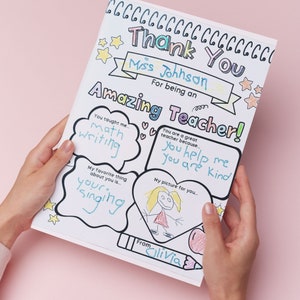 Thank You
Miss Johnson
For being an
Amazing Teacher!
You taught me...
math
writing
You are a great
teacher because...
you help me
you are kind
My favorite thing
about you is...
your
singing
My picture for you...
From...
Olivia